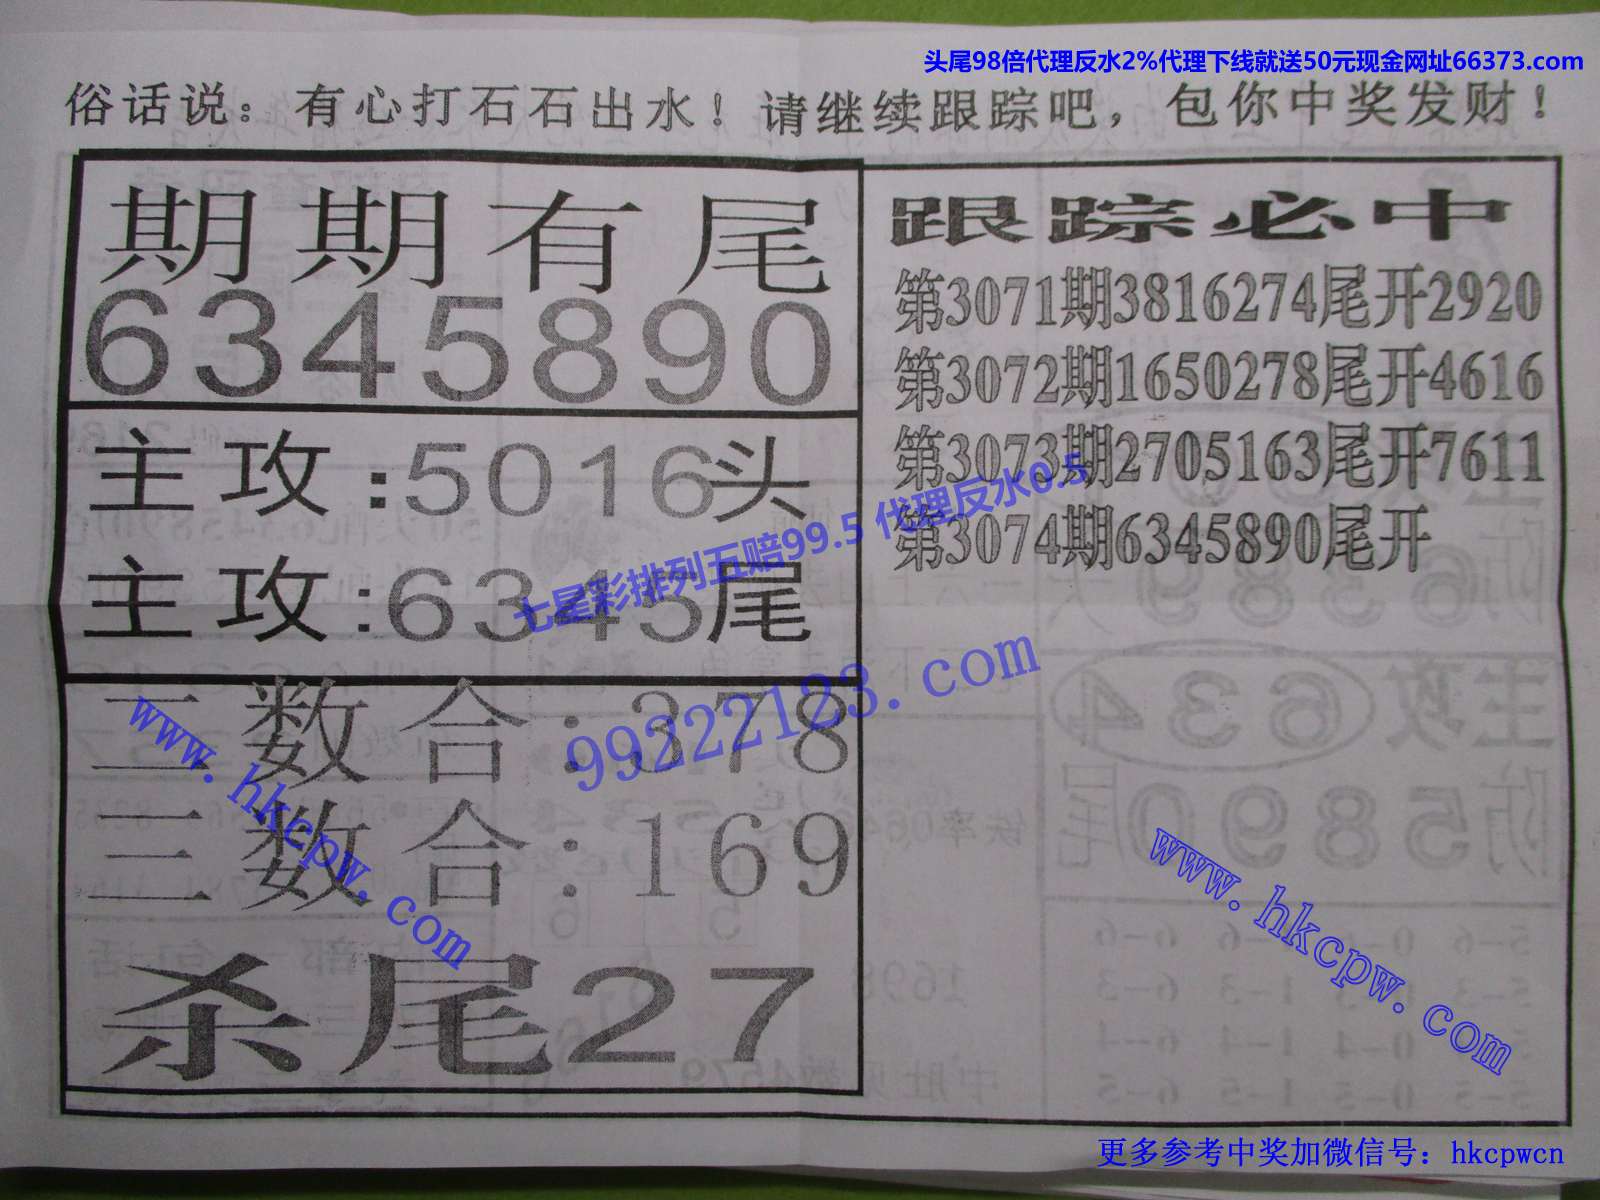 头尾98倍代理反水2%代理下线就送50元现金网址66373.com
俗话说：有心打石石出水！请继续跟踪吧，包你中奖发财！
期期有尾
6345890
主攻:5016头
主攻:6345尾
二数合:378
三数合:169
杀尾27
跟踪必中
第3071期3816274尾开2920
第3072期1650278尾开4616
第3073期2705163尾开7611
第3074期6345890尾开
七星彩排列五赔99.5 代理反水0.5
99222123.com
www.hkcpw.com
www.hkcpw.com
更多参考中奖加微信号：hkcpwcn